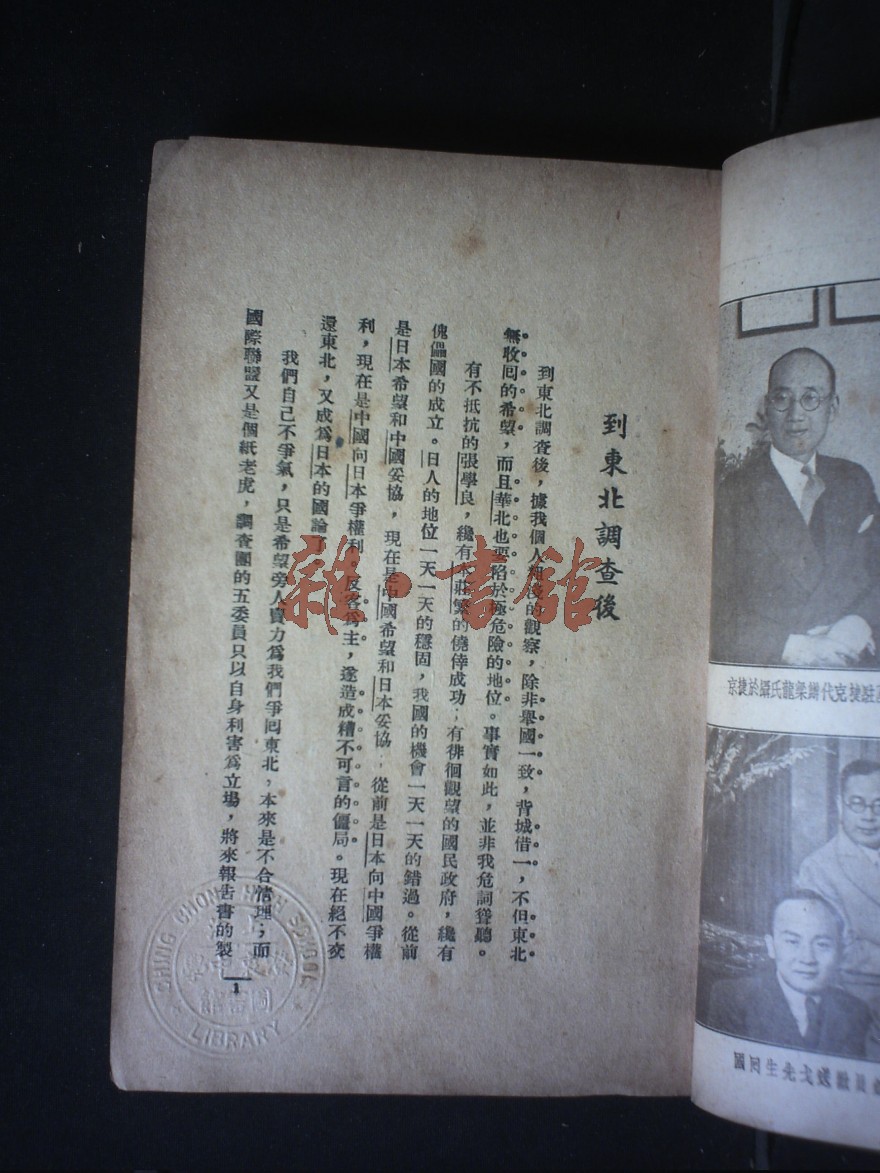 到東北調查後
到東北調查後，據我個人粗淺的觀察，除非舉國一致，背城借一，不但東北
無收囘的希望，而且華北也要陷於極危險的地位。事實如此，並非我危詞聳聽。
有不抵抗的張學良，纔有本莊繁的僥倖成功；有徘徊觀望的國民政府，纔有
傀儡國的成立。日人的地位一天一天的穩固，我國的機會一天一天的錯過。從前
是日本希望和中國妥協，現在是中國希望和日本妥協，從前是日本向中國爭權
利，現在是中國向日本爭權利。反客爲主，遂造成糟不可言的僵局。現在絕不交
還東北，又成爲日本的國論了。
我們自己不爭氣，只是希望旁人賣力爲我們爭囘東北，本來是不合情理；而
國際聯盟又是個紙老虎，調查團的五委員只以自身利害爲立場，將來報告書的製
1
雜·書館
CHUNG CHONG HIGH SCHOOL
圖書館
LIBRARY
駐捷克代辦梁龍氏攝於捷京
戈先生囘國